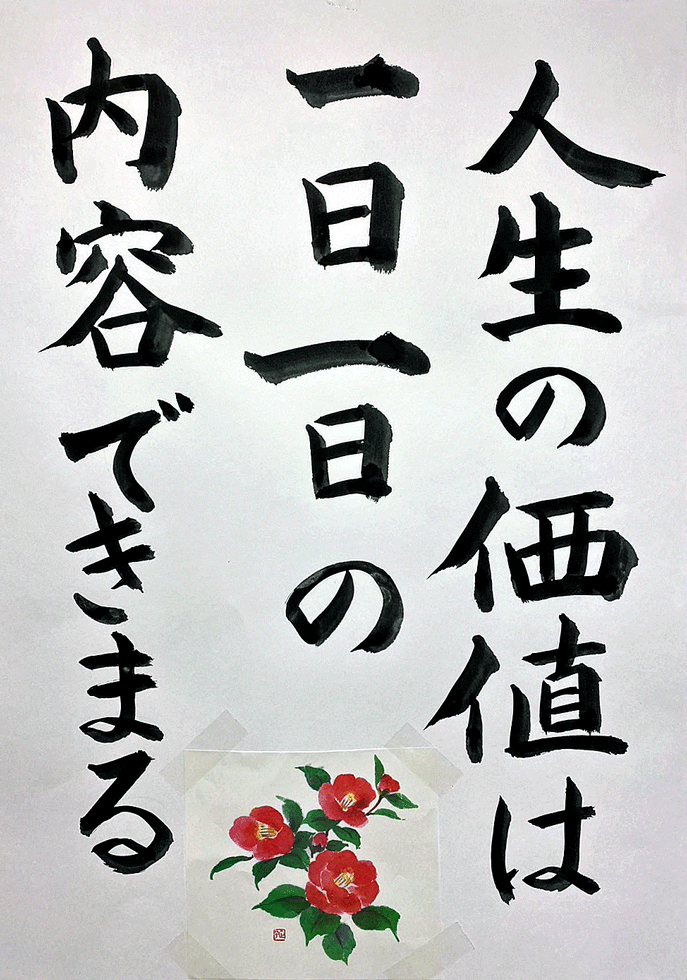 人生の価値は
一日一日の
内容できまる